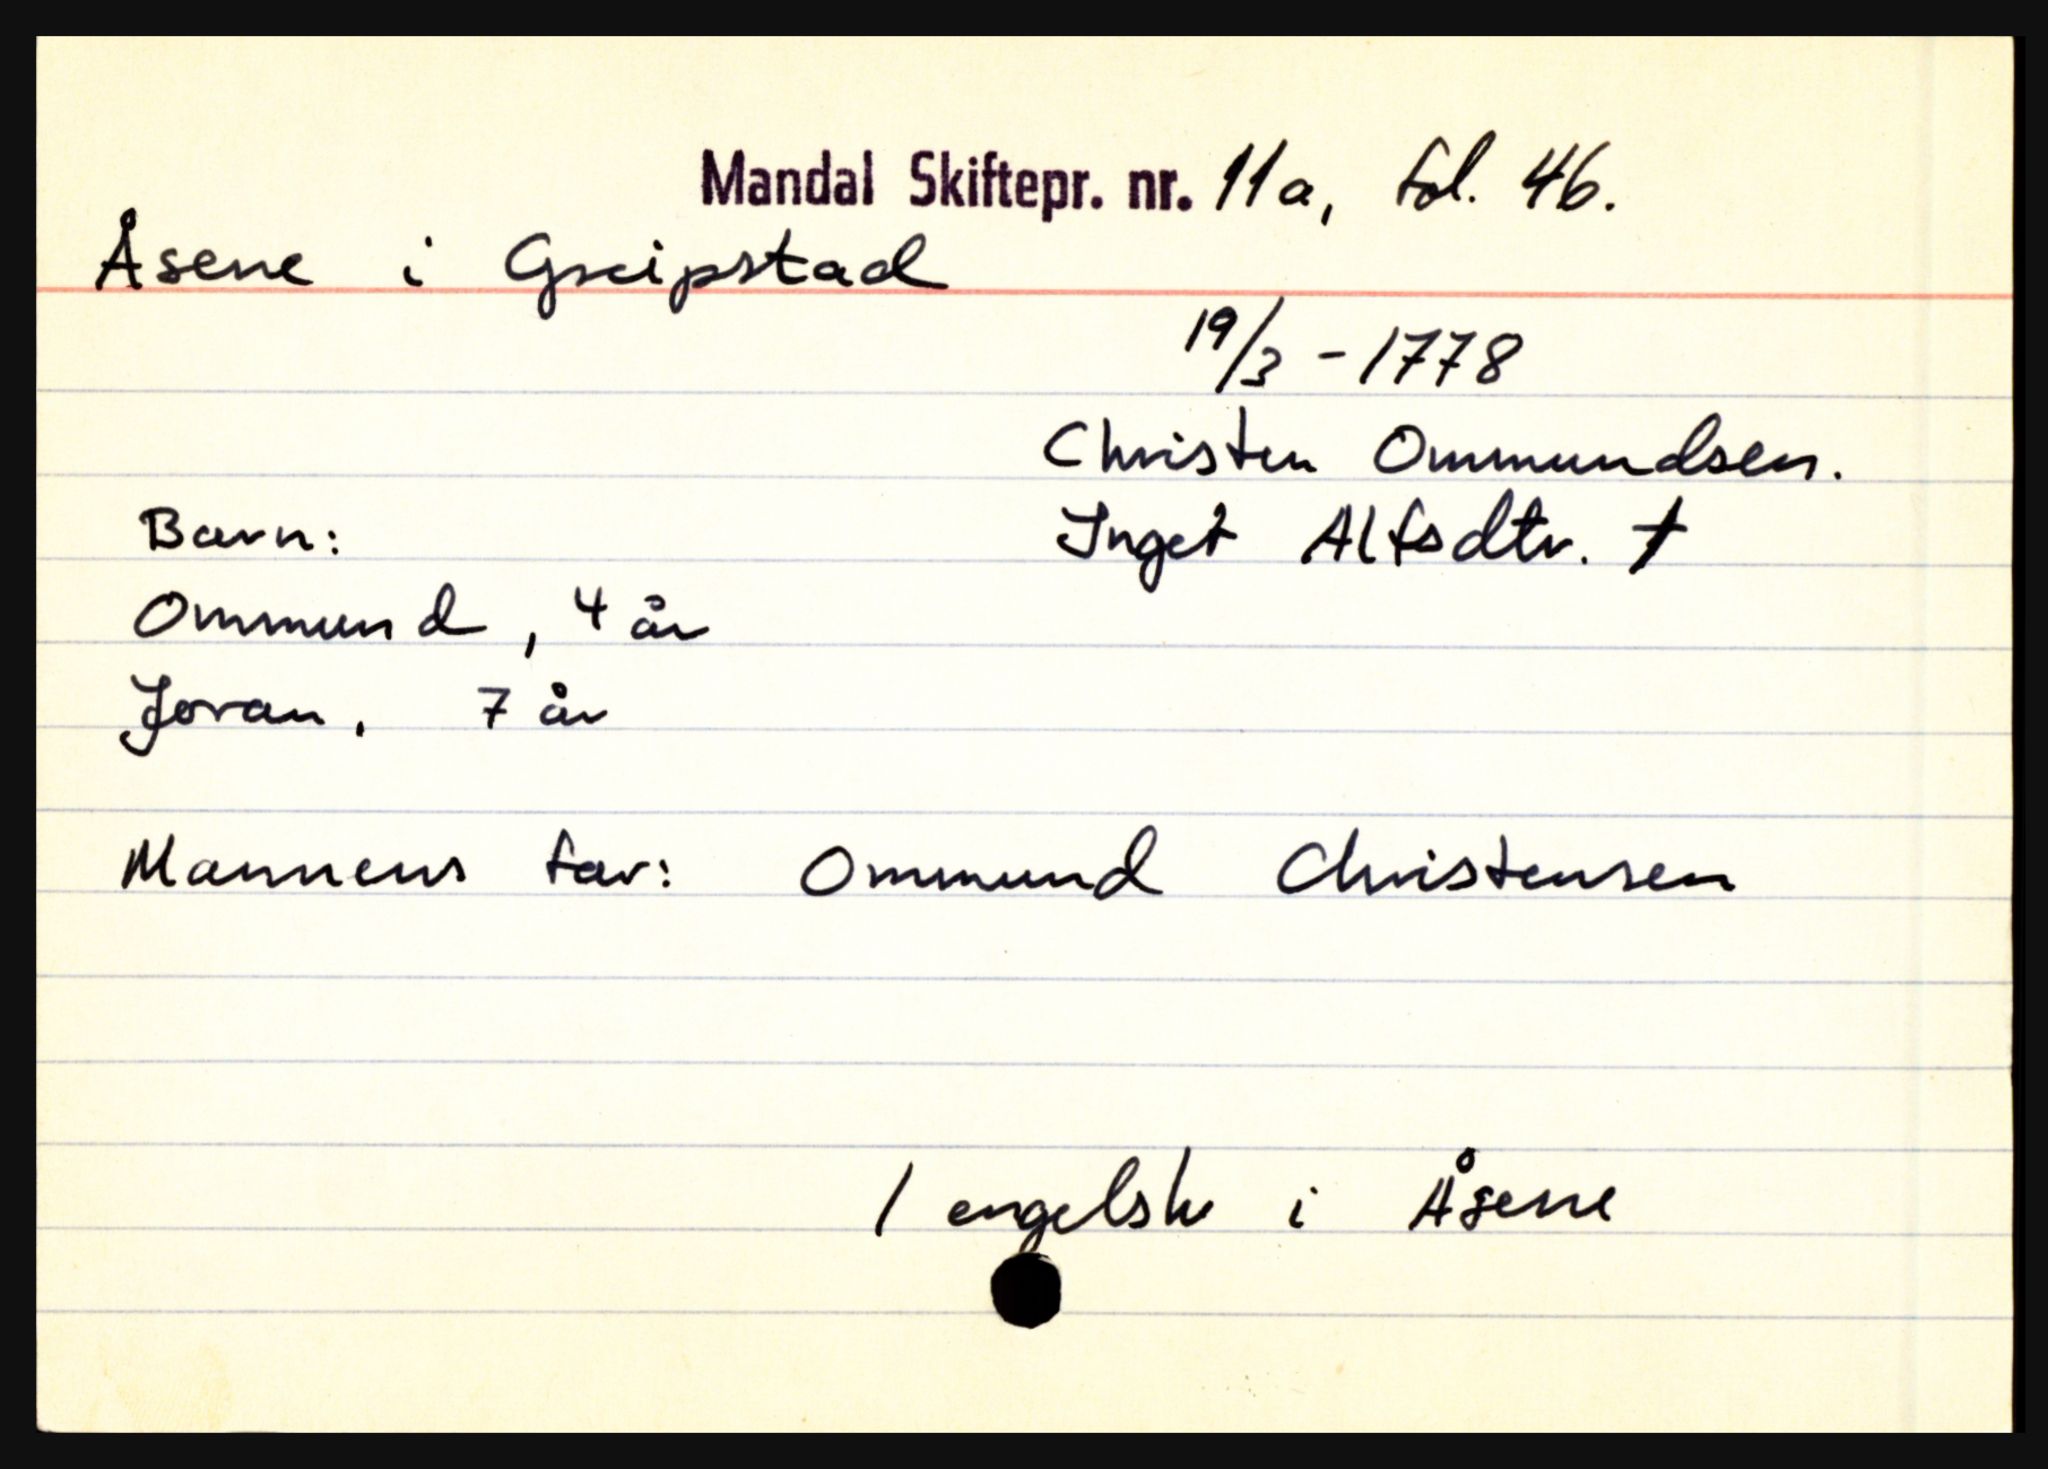 Mandal Skiftepr. nr. 11a, fol. 46.
Åsene i Greipstad
19/3 - 1778
Christen Ommundsen.
Barn: Inget Alfsdtr. †
Ommund, 4 år
Joran, 7 år
Mannens far: Ommund Christensen
1 engelsk i Åsene